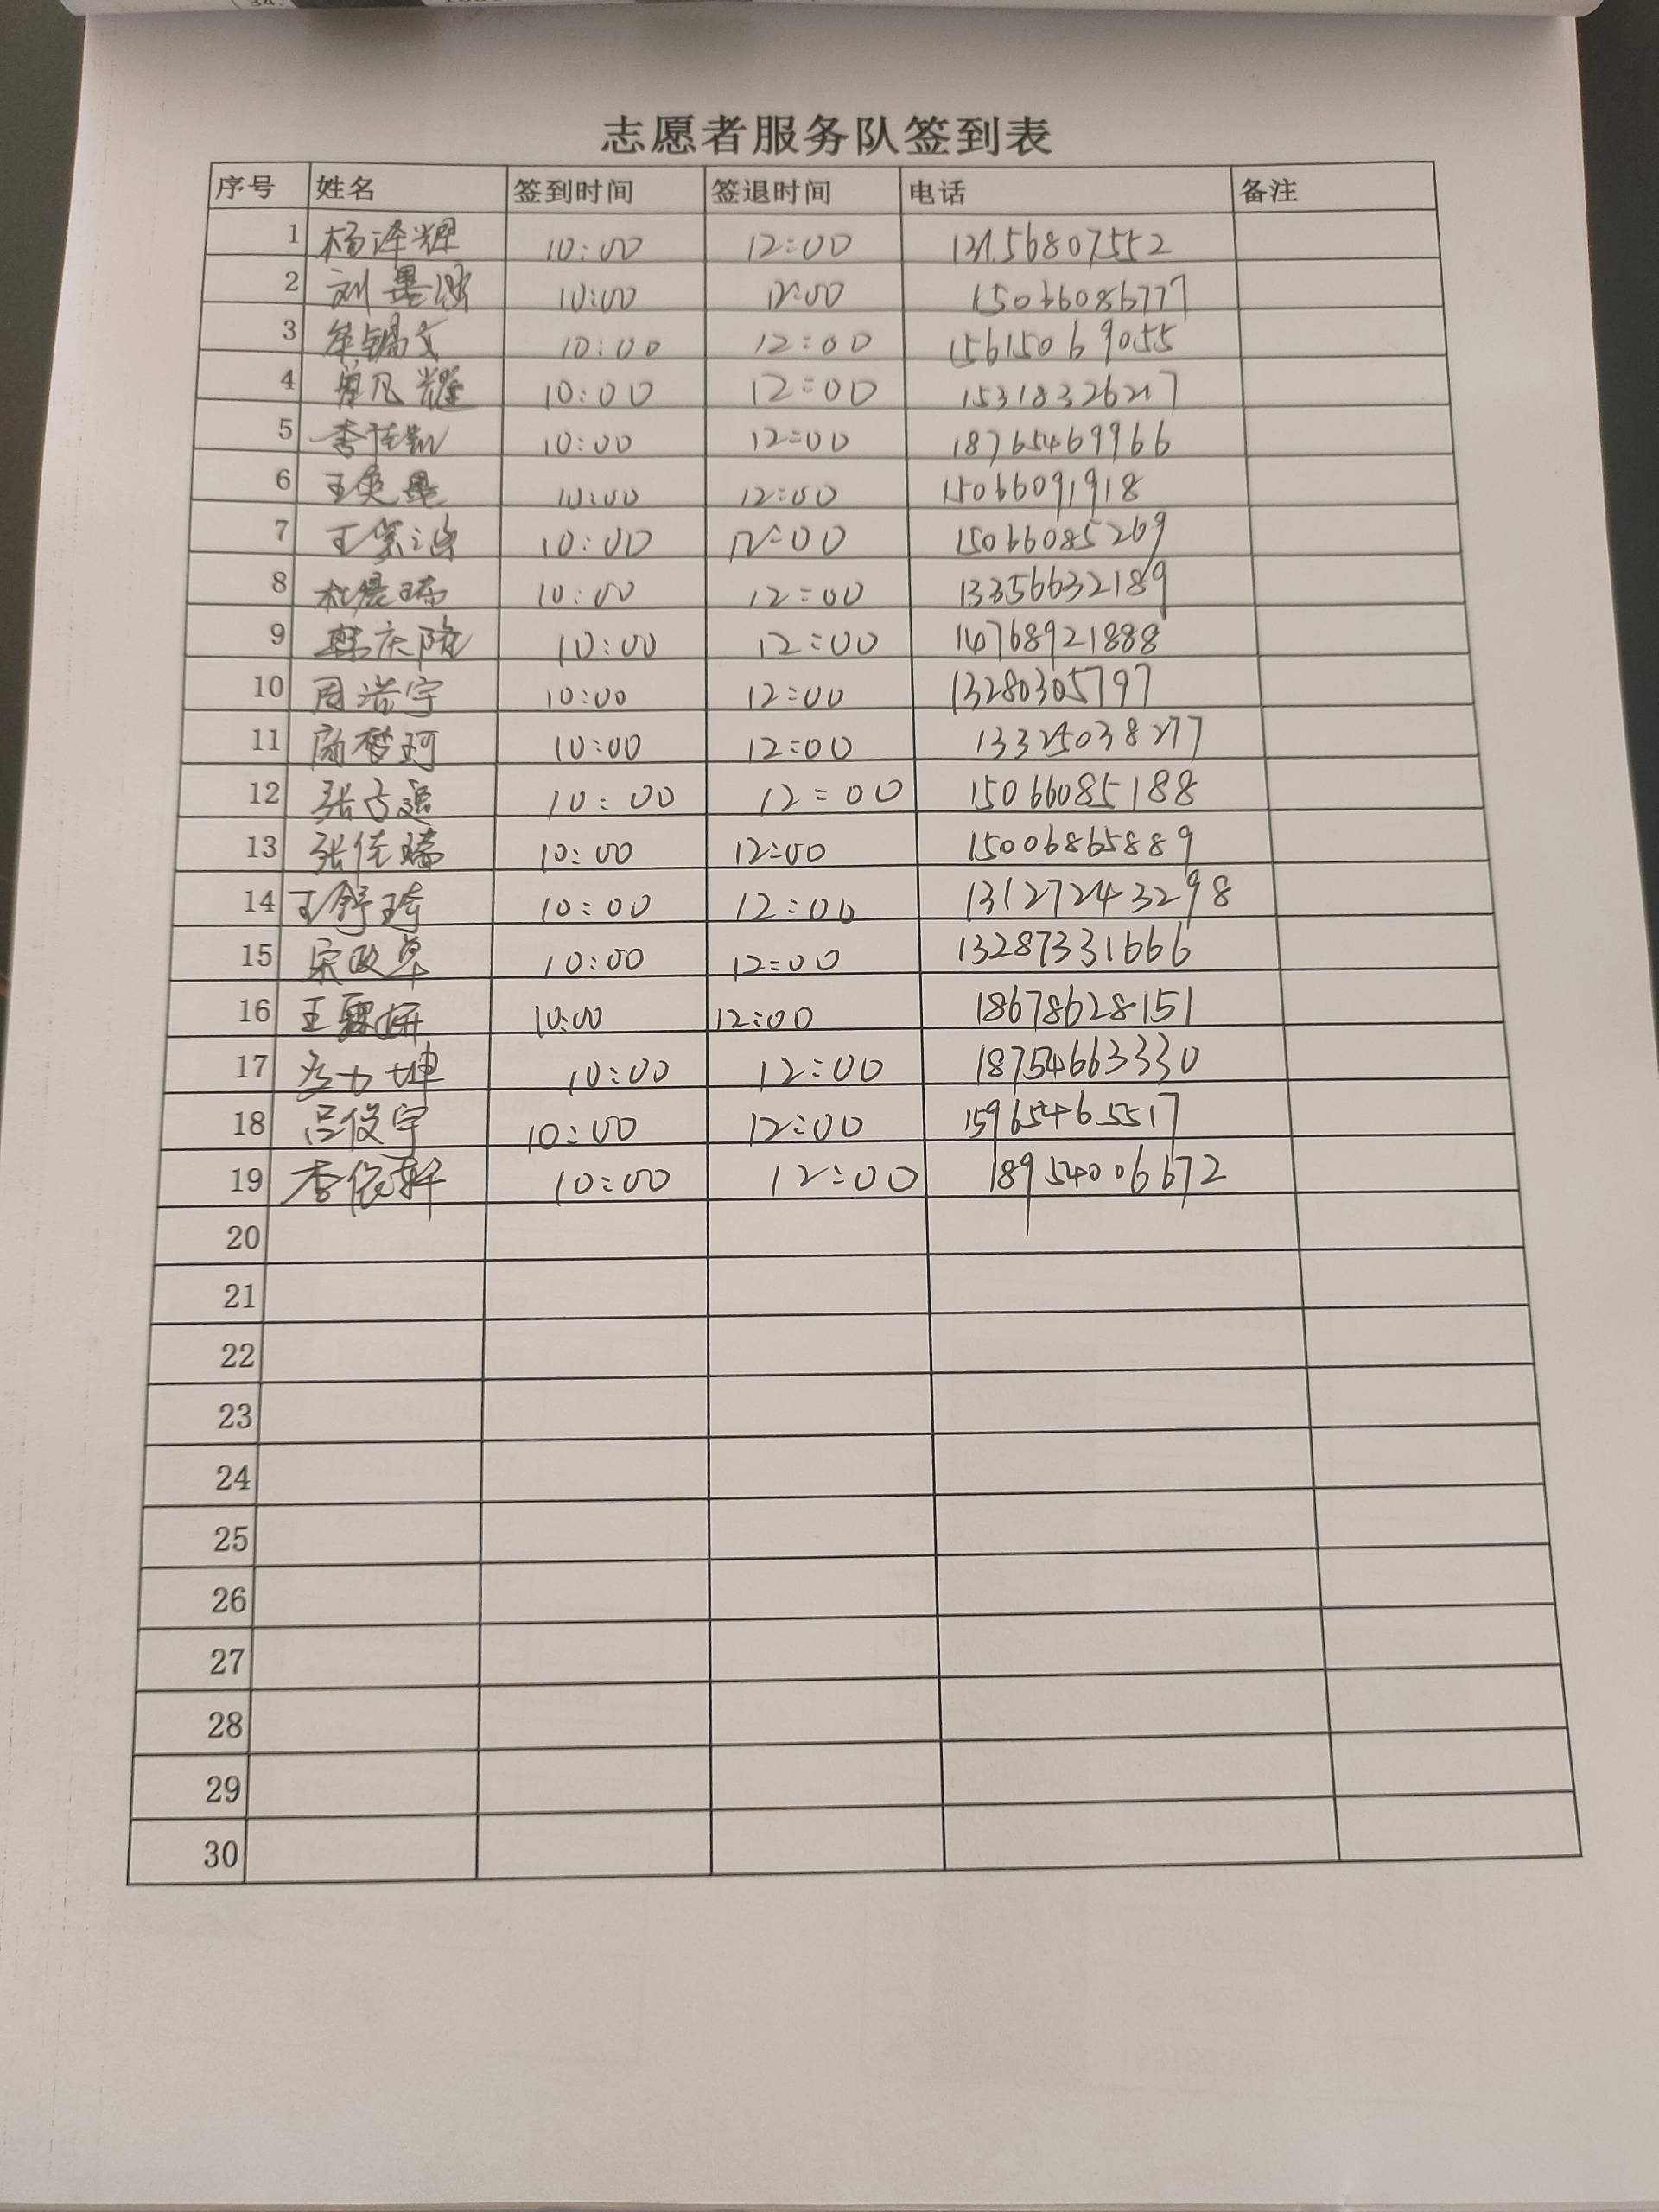 志愿者服务队签到表
序号 姓名 签到时间 签退时间 电话 备注
1 杨泽辉 10:00 12:00
2 刘墨 10:00 12:00 15066086777
3 文 10:00 12:00 15615069055
4 凡耀 10:00 12:00 15318326217
5 李佳凯 10:00 12:00 18765469966
6 王奕墨 10:00 12:00 15066091918
7 王 10:00 12:00 15066085269
8 杜晨瑞 10:00 12:00 13356632189
9 韩庆隆 10:00 12:00 14768921888
10 周浩宇 10:00 12:00 13280305797
11 顾梦珂 10:00 12:00 13325038277
12 张 10:00 12:00 15066085188
13 张佳瑞 10:00 12:00 15006865889
14 王舒琦 10:00 12:00 13127243298
15 宋政卓 10:00 12:00 13287331666
16 王 妍 10:00 12:00 18678628151
17 坤 10:00 12:00 18754663330
18 吕俊宇 10:00 12:00 15965465517
19 李依轩 10:00 12:00 18954006672
20
21
22
23
24
25
26
27
28
29
30